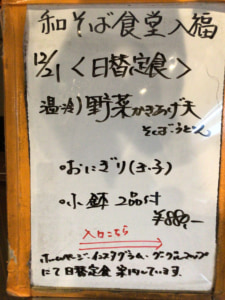 和そば食堂 入福
12/21 <日替定食>
温(冷)野菜かきあげ天
そば・うどん
•おにぎり(玉子)
•小鉢 2品付
¥880,-
入口こちら
ホームページ・インスタグラム・グーグルマップ
にて日替定食 案内しています。